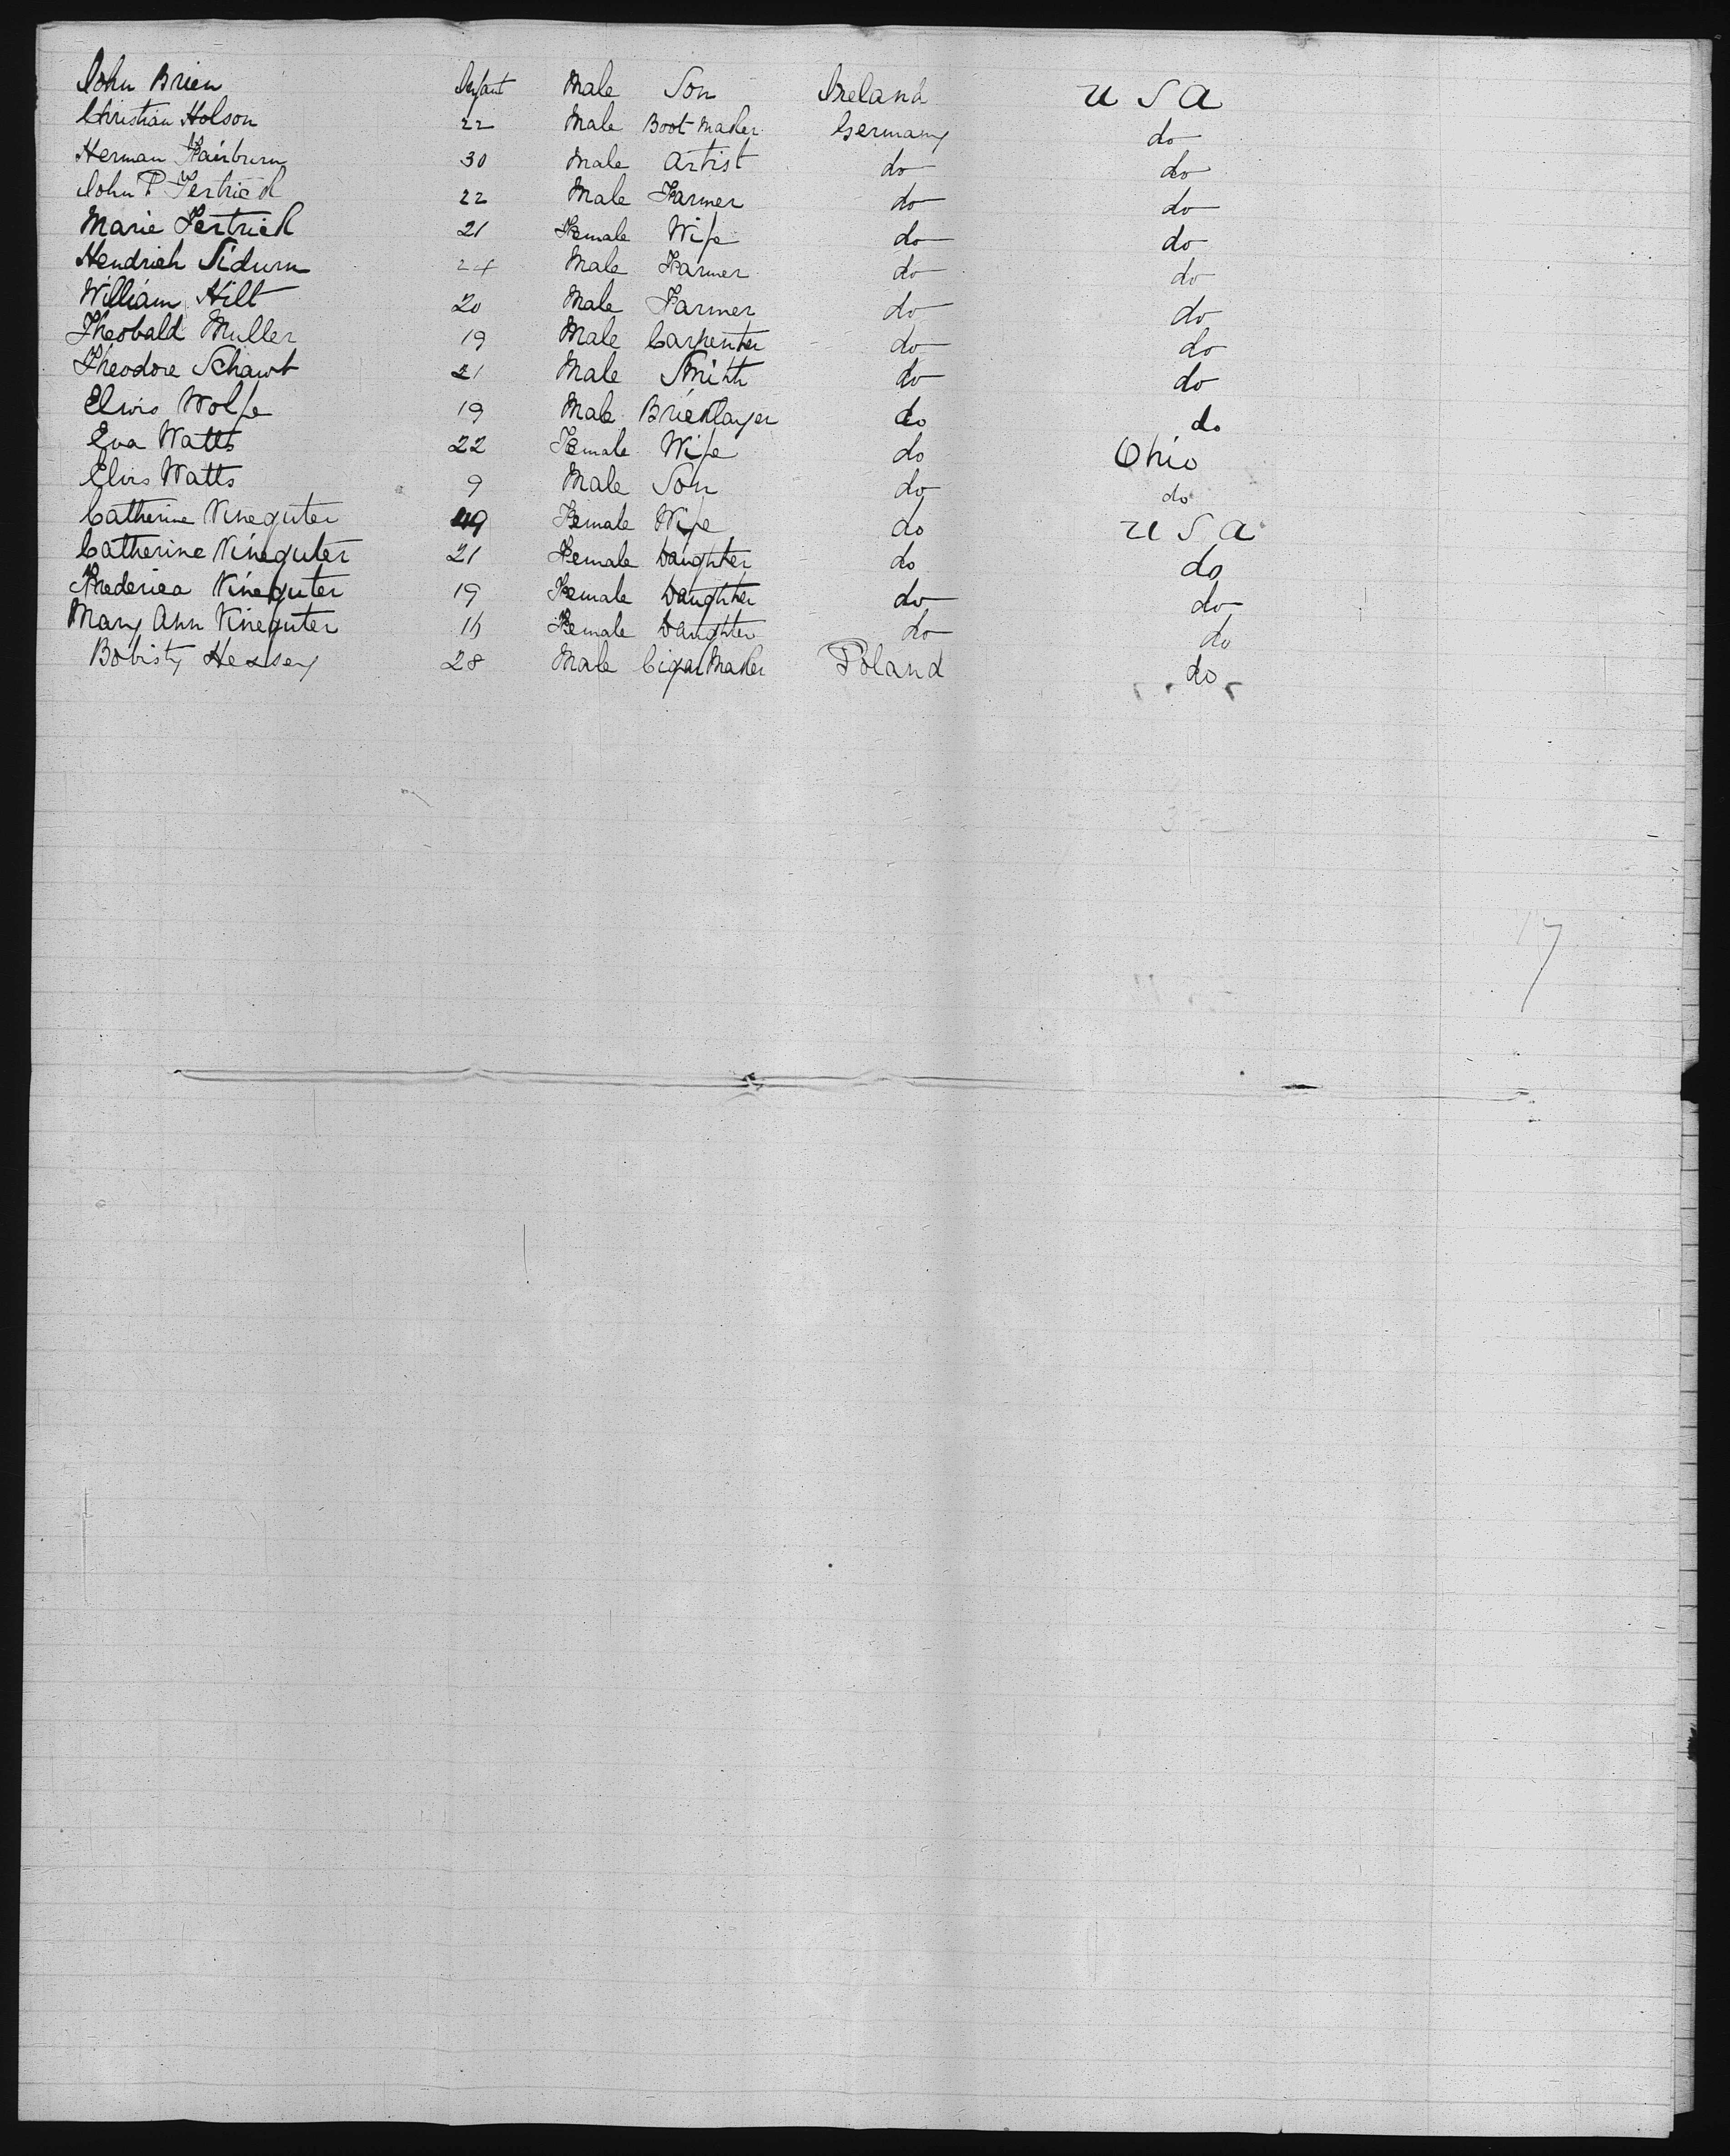 John Brien Infant Male Son Ireland U S A
Christian Holson 22 Male Boot Maker Germany do
Herman Fairburn 30 Male Artist do do
John P Fertrick 22 Male Farmer do do
Marie Fertrick 21 Female Wife do do
Hendrich Sidurn 24 Male Farmer do do
William Hilt 20 Male Farmer do do
Theobald Muller 19 Male Carpenter do do
Theodore Schawt 21 Male Smith do do
Elwis Wolfe 19 Male Bricklayer do do
Eva Watts 22 Female Wife do Ohio
Elvis Watts 9 Male Son do do
Catherine Vineguter 49 Female Wife do U S A
Catherine Vineguter 21 Female Daughter do do
Frederica Vineguter 19 Female Daughter do do
Mary Ann Vineguter Female Daughter do do
Bobisty Hessey 28 Male Cigar Maker Poland do
17